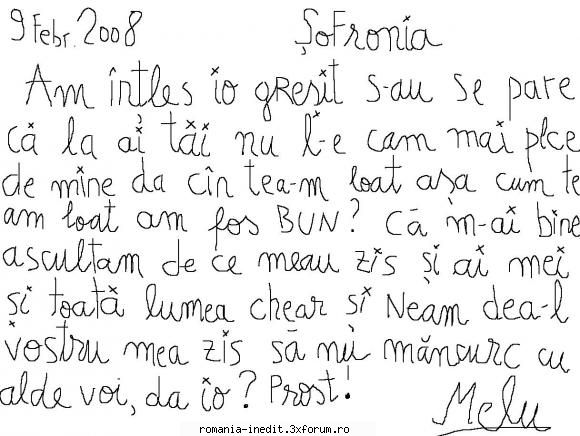 9 Febr. 2008 ȘoFronia
Am întles io gresit s-au se pare
că la ai tăi nu l-e cam mai plce
de mine da cîn tea-m loat așa cum te
am loat am fos BUN? Că m-ai bine
ascultam de ce meau zis și ai mei
și toată lumea chear si Neam dea-l
vostru mea zis să nu măncurc cu
alde voi, da io? Prost!
Melu
romania-inedit.3xforum.ro